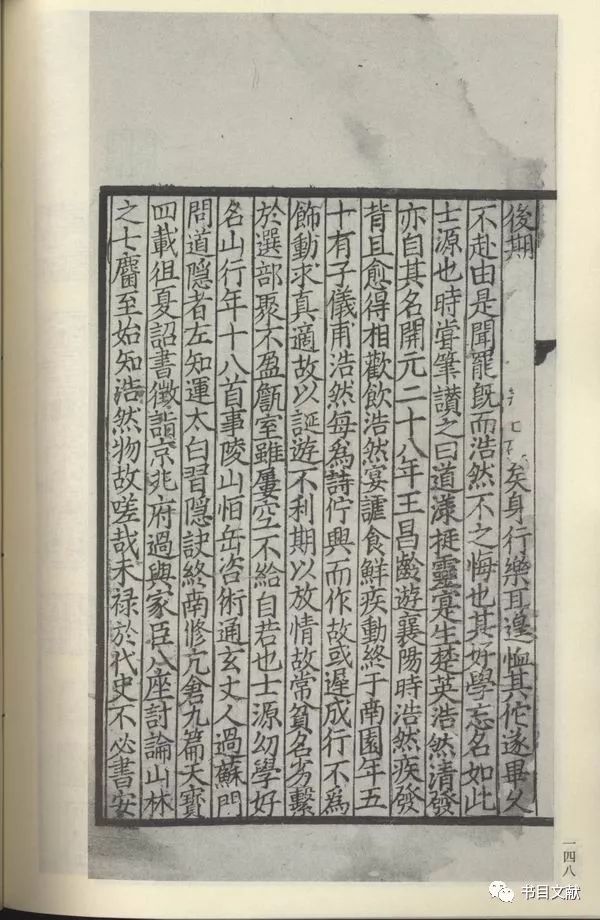 後期矣身行樂耳遑恤其佗遂畢久
不赴由是聞罷旣而浩然不之悔也其好學忘名如此
士源也時嘗筆讃之曰道漾挺靈寔生楚英浩然清發
亦自其名開元二十八年王昌齡遊襄陽時浩然疾發
背且愈得相歡飲浩然宴謔食鮮疾動終于南園年五
十有子儀甫浩然每爲詩佇興而作故或遲成行不爲
飾動求真適故以誕遊不利期以放情故常貧名劣繫
於選部聚不盈甔室雖屢空不給自若也士源幼學好
名山行年十八首事陵山怕岳咨術通玄丈人過蘇門
問道隱者左知運太白習隱訣終南修亢倉九篇天寶
四載徂夏詔書徵詣京兆府過與家臣八座討論山林
之士麏至始知浩然物故嗟哉未禄於代史不必書安
一四八
书目文献